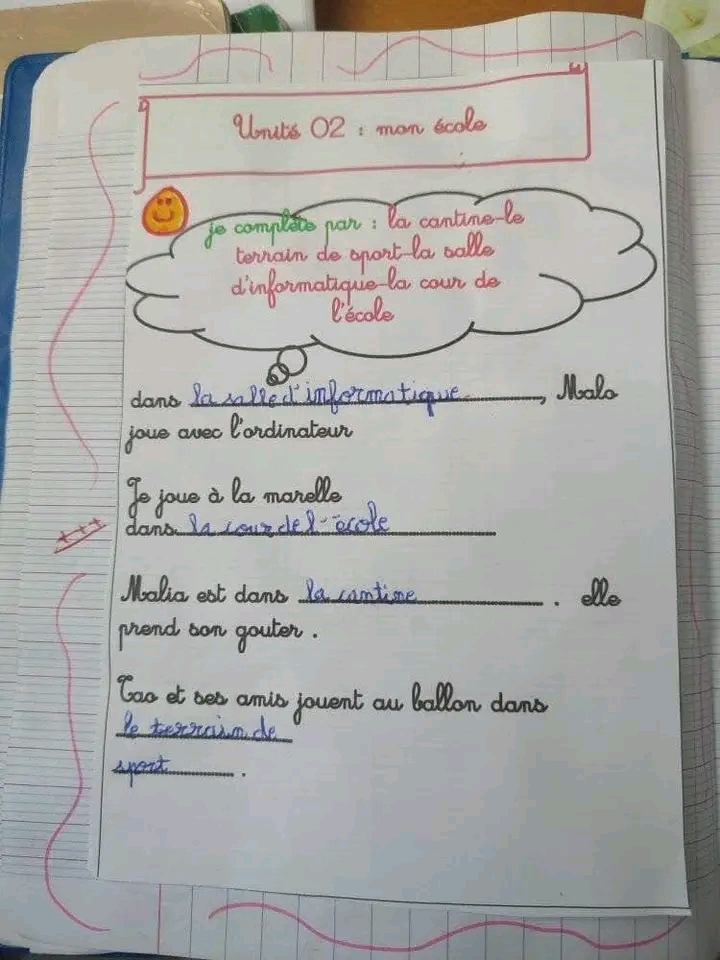 Unité 02 : mon école
je complète par : la cantine-le
terrain de sport-la salle
d'informatique-la cour de
l'école
dans la salle d'informatique, Malo
joue avec l'ordinateur
Je joue à la marelle
dans la cour de l'école
Malia est dans la cantine. elle
prend son gouter.
Tao et ses amis jouent au ballon dans
le terrain de
sport.